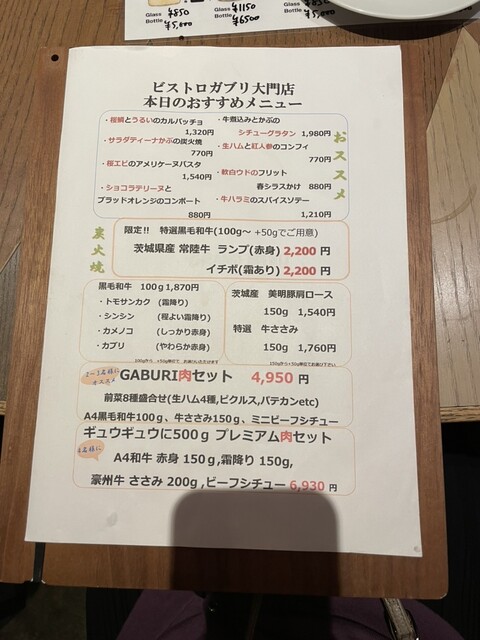 Glass ¥850
Bottle ¥5,000
Glass ¥1150
Bottle ¥6500
Glass
Bottle
ビストロガブリ大門店
本日のおすすめメニュー
おススメ
・桜鯛とうるいのカルパッチョ
1,320円
・サラダティーナかぶの炭火焼
770円
・桜エビのアメリケーヌパスタ
1,540円
・ショコラテリーヌと
ブラッドオレンジのコンポート
880円
・牛煮込みとかぶの
シチューグラタン 1,980円
・生ハムと紅人参のコンフィ
770円
・軟白ウドのフリット
春シラスかけ 880円
・牛ハラミのスパイスソテー
1,210円
炭火焼
限定!! 特選黒毛和牛(100g～ +50gでご用意)
茨城県産 常陸牛 ランプ(赤身) 2,200 円
イチボ(霜あり) 2,200 円
黒毛和牛 100g1,870円
・トモサンカク (霜降り)
・シンシン (程よい霜降り)
・カメノコ (しっかり赤身)
・カブリ (やわらか赤身)
茨城産 美明豚肩ロース
150g 1,540円
特選 牛ササミ
150g 1,760円
2～3名様に
オススメ
GABURI肉セット 4,950 円
前菜8種盛合せ(生ハム4種,ピクルス,パテカンetc)
A4黒毛和牛100g、牛ささみ150g、ミニビーフシチュー
ギュウギュウに500g プレミアム肉セット
4名様に
A4和牛 赤身 150g,霜降り 150g,
豪州牛 ささみ 200g ,ビーフシチュー 6,930 円